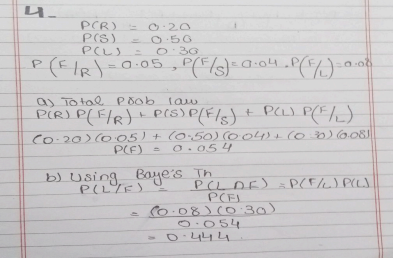 4.
P(R) = 0.20
P(S) = 0.50
P(L) = 0.30
P(F/R) = 0.05, P(F/S) = 0.04, P(F/L) = 0.08
a) Total Prob law
P(R) P(F/R) + P(S) P(F/S) + P(L) P(F/L)
(0.20)(0.05) + (0.50)(0.04) + (0.30)(0.08)
P(F) = 0.054
b) Using Baye's Th
P(L/F) = P(L∩F) / P(F) = P(F/L) P(L)
= (0.08)(0.30) / 0.054
= 0.444